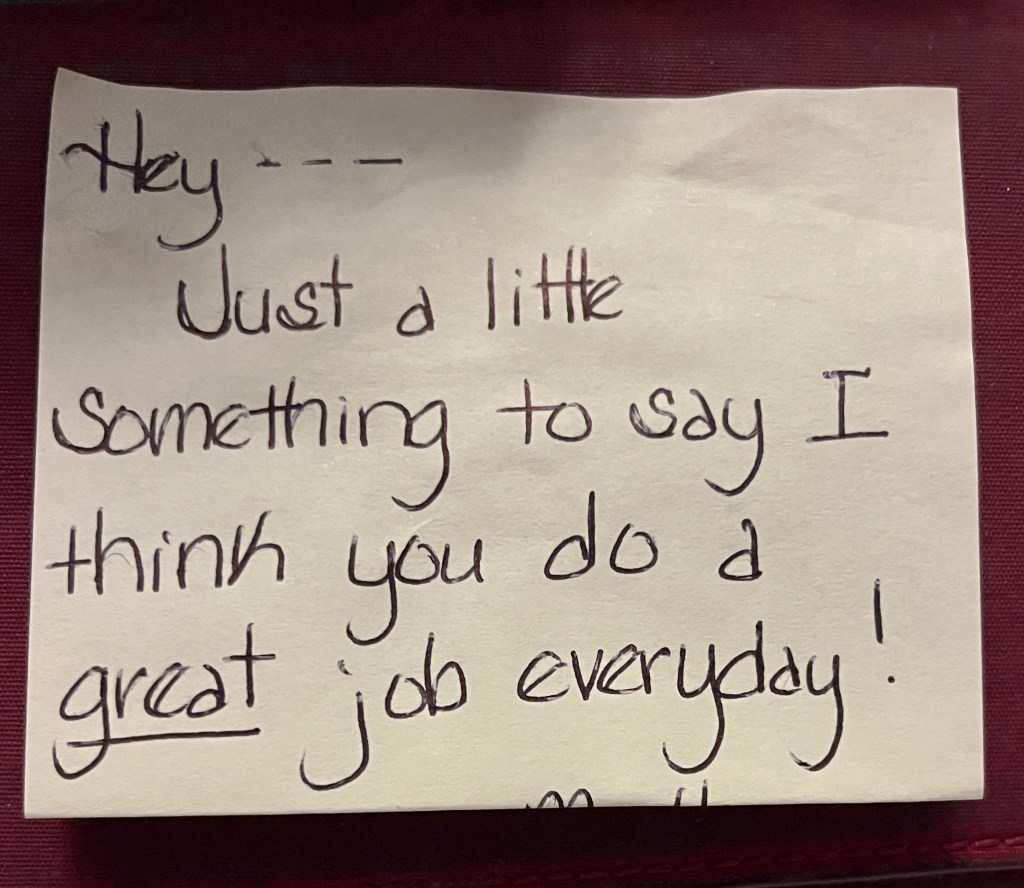 Hey - - -
Just a little
something to say I
think you do a
great job everyday!